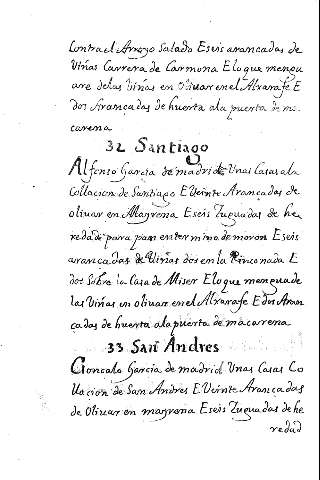 Contra el Arroyo Salado E seis arançadas de
Viñas Carrera de Carmona E lo que mengu
are delas Viñas en Olivar en el Alxarafe E
dos Arançadas de huerta ala puerta de ma
carena
32 Santiago
Alfonso Garcia de madrid Unas Casas ala
Collacion de Santiago E Veinte Arançadas de
olivar en Magrena E seis Yuguadas de he
redad para pan en termino de moron E seis
arançadas de Viñas dos en la Rinconada E
dos sobre la Casa de Miser E lo que mengua de
las Viñas en olivar en el Alxarafe E dos Aran
çadas de huerta ala puerta de macarena
33 San Andres
Goncalo Garcia de madrid Unas Casas Co
llacion de San Andres E Veinte Arançadas
de Olivar en magrena E seis Yuguadas de he
redad